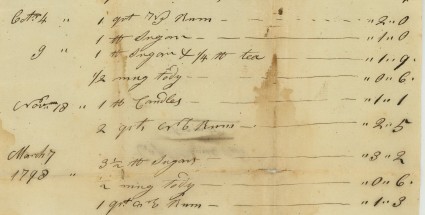 Octr 4 " 1 qrt N E Rum - " 2 " 0
1 lb Sugar - " 1 " 0
9 " 1 lb Sugar & 1/4 lb tea - " 1 " 9
1/2 mug tody - " 0 " 6
Novr 18 " 1 lb Candles - " 1 " 1
2 qts N E Rum - " 2 " 5
March 7 3 1/2 lb Sugar - " 3 " 2
1798 " 2 mug tody - " 0 " 6
1 qrt N E Rum - " 1 " 3